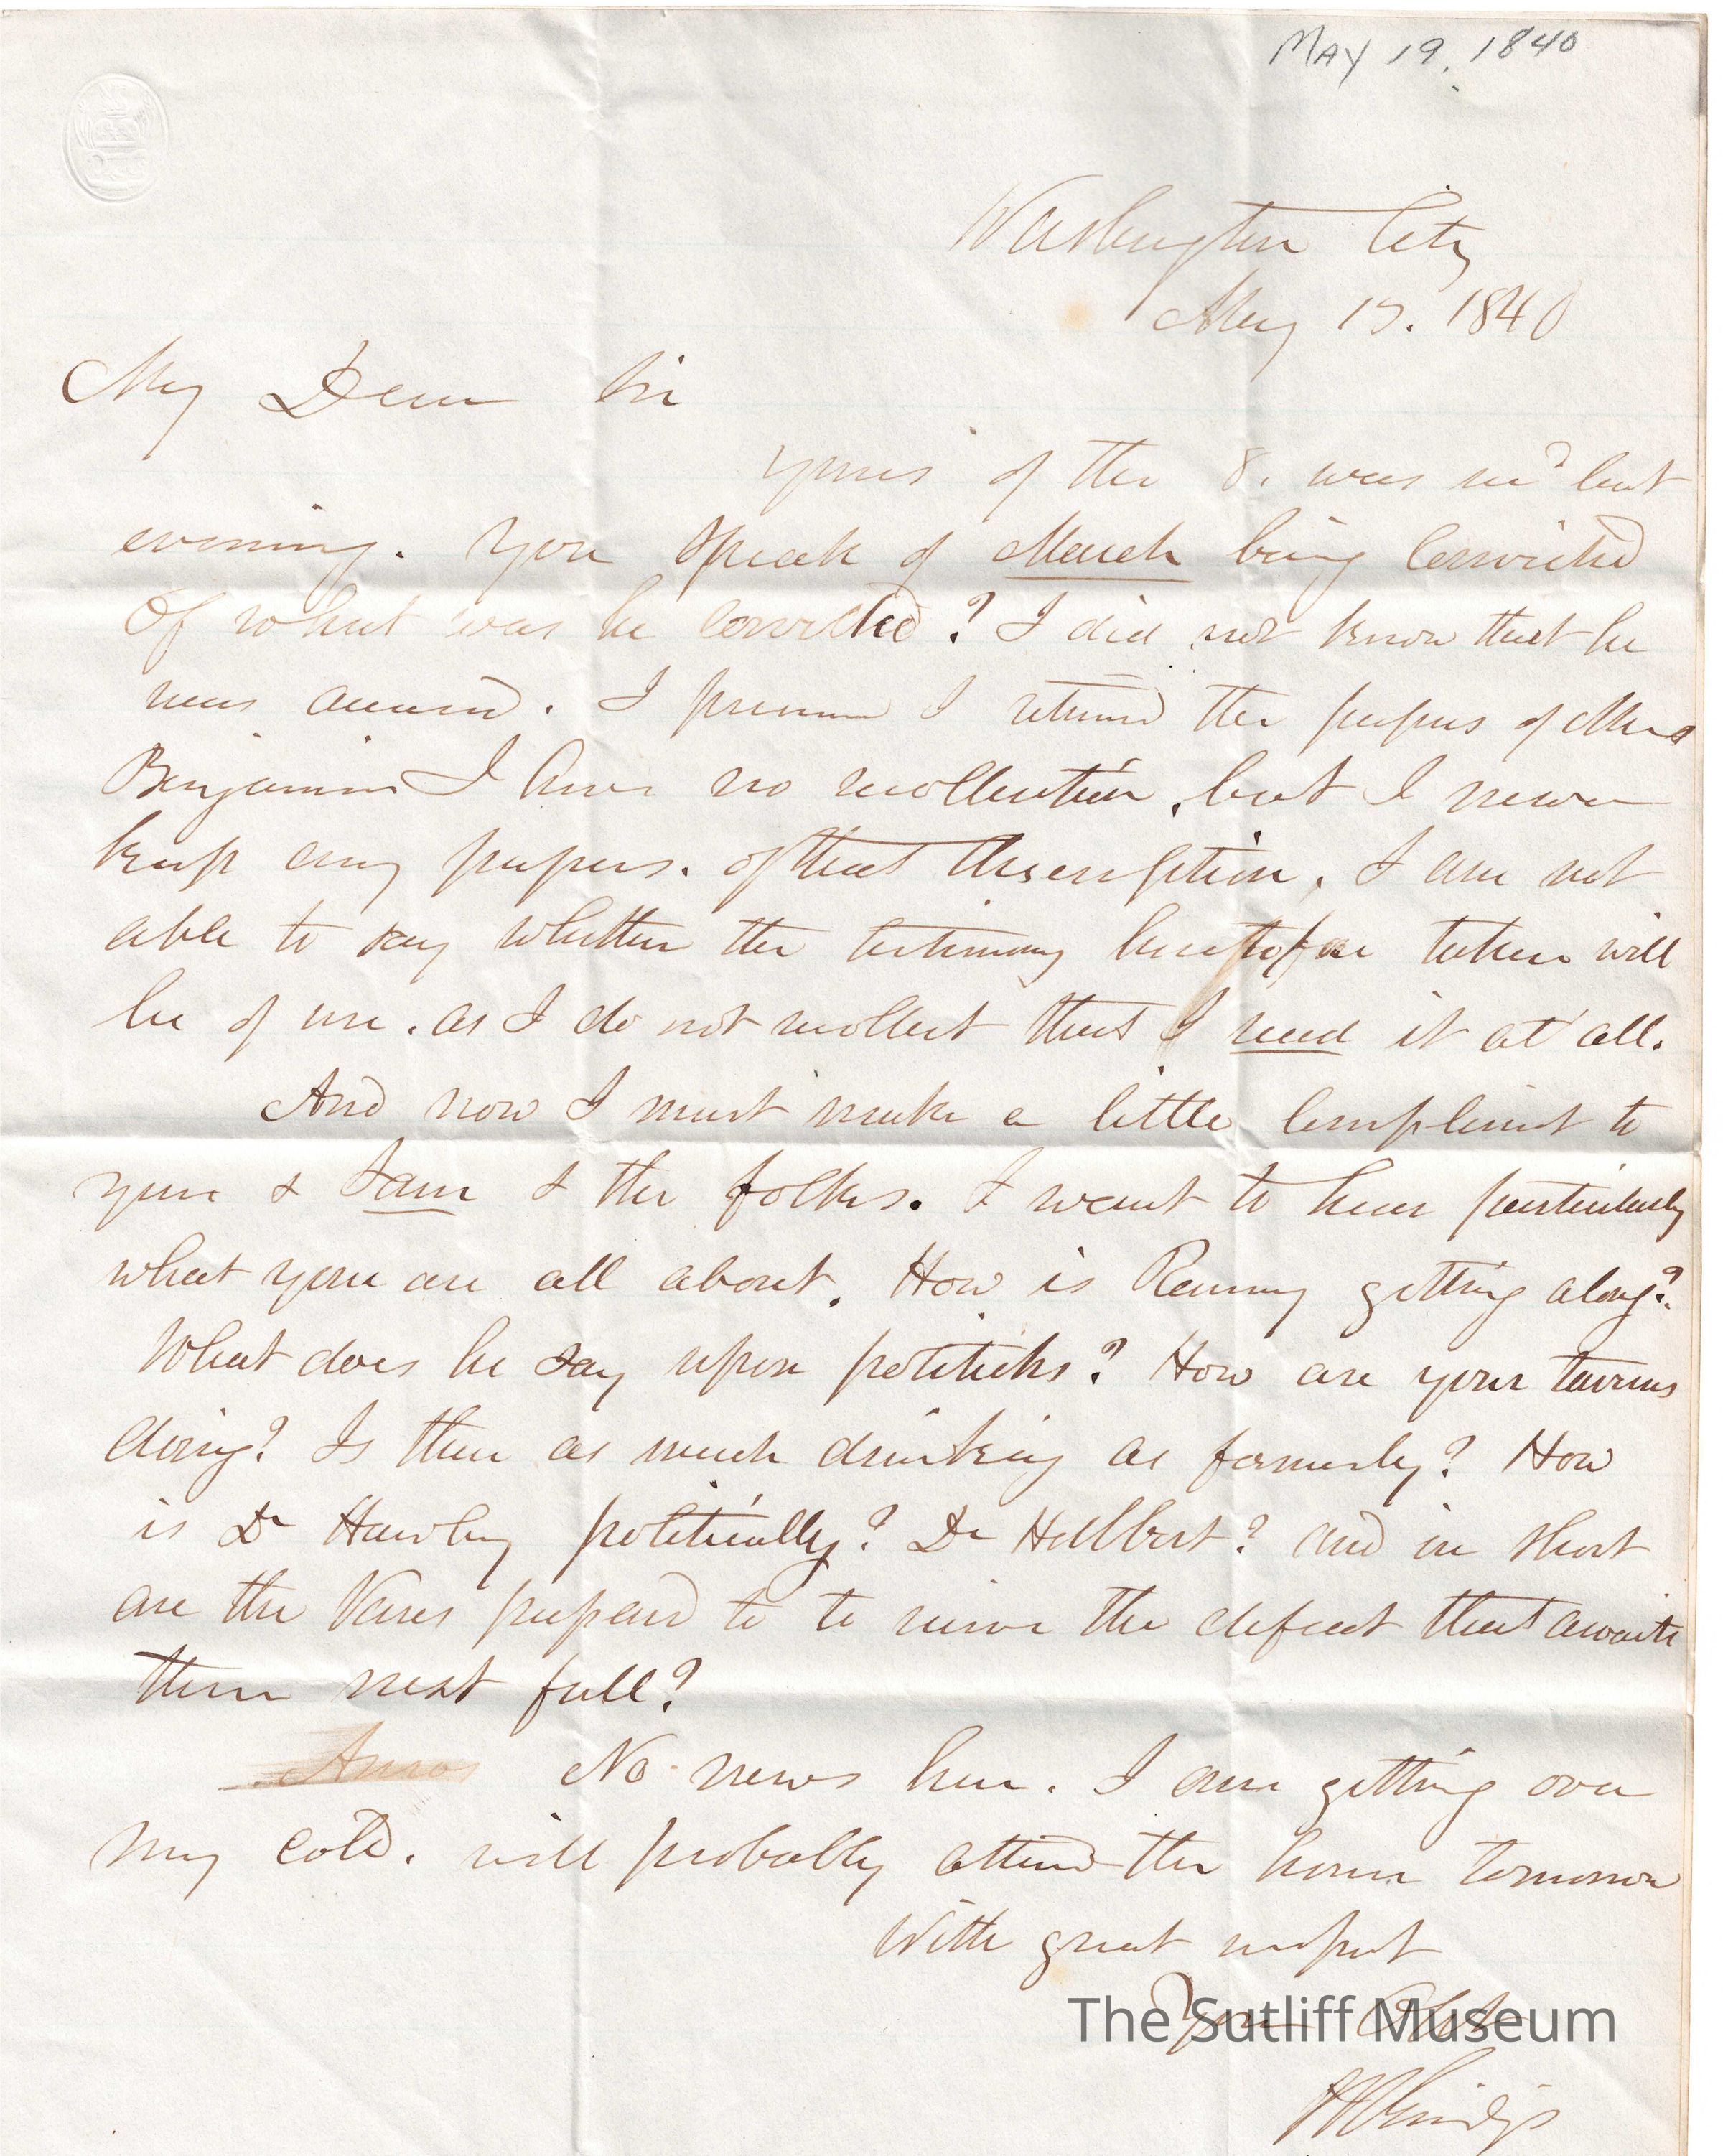 MAY 19, 1840
Washington City
May 19. 1840
My Dear Sir
yours of the 8. was recd last
evening. You speak of March being convicted
Of what was he convicted? I did not know that he
was accused. I presume I returned the papers of Mrs
Benjamin I have no recollection, but I never
keep any papers. of that description. I am not
able to say whether the testimony heretofore taken will
be of use. as I do not recollect that I read it at all.
And now I must make a little complaint to
you & Sam & the folks. I want to hear particularly
what you are all about. How is Ranny getting along?
What does he say upon politicks? How are your taverns
doing? Is there as much drinking as formerly? How
is Dr Hawley politically? Dr Hulbert? and in short
are the Vans prepared to to receive the defeat that awaits
them next fall?
No news here. I am getting over
my cold. will probably attend the house tomorrow
With great respect
Your Obt
The Sutliff Museum
J R Giddings